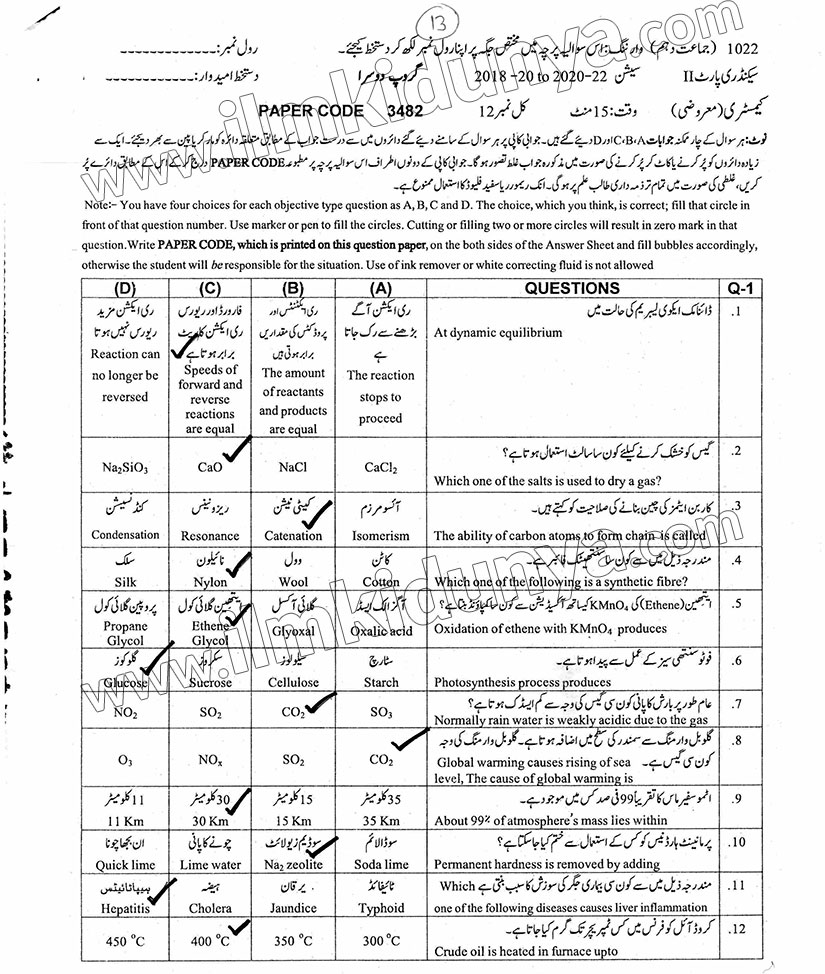 13
1022 (جماعت دہم) وارننگ: اس سوالیہ پرچہ میں مختص جگہ پر اپنا رول نمبر لکھ کر دستخط کیجئے۔ رول نمبر:
سیکنڈری پارٹ II سیشن 2018 -20 to 2020-22 گروپ دوسرا دستخط امیدوار:
کیمسٹری (معروضی) وقت: 15 منٹ کل نمبر 12 PAPER CODE 3482
نوٹ: ہر سوال کے چار ممکنہ جوابات C،B،A اور D دیئے گئے ہیں۔ جوابی کاپی پر ہر سوال کے سامنے دیئے گئے دائروں میں سے درست جواب کے مطابق متعلقہ دائرہ کو مارکر یا پین سے بھر دیجئے۔ ایک سے
زیادہ دائروں کو پُر کرنے یا کاٹ کر پُر کرنے کی صورت میں مذکورہ جواب غلط تصور ہوگا۔ جوابی کاپی کے دونوں اطراف اس سوالیہ پرچہ پر مطبوعہ PAPER CODE درج کر کے اس کے مطابق دائرے پُر
کریں، غلطی کی صورت میں تمام تر ذمہ داری طالب علم پر ہوگی۔ انک ریموور یا سفید فلیوڈ کا استعمال ممنوع ہے۔
Note:- You have four choices for each objective type question as A, B, C and D. The choice, which you think, is correct; fill that circle in
front of that question number. Use marker or pen to fill the circles. Cutting or filling two or more circles will result in zero mark in that
question.Write PAPER CODE, which is printed on this question paper, on the both sides of the Answer Sheet and fill bubbles accordingly,
otherwise the student will be responsible for the situation. Use of ink remover or white correcting fluid is not allowed
(D) (C) (B) (A) QUESTIONS Q-1
ری ایکشن مزید
ریورس نہیں ہوتا
Reaction can
no longer be
reversed
فارورڈ اور ریورس
ری ایکشن کا ریٹ
برابر ہوتا ہے
Speeds of
forward and
reverse
reactions
are equal
ری ایکٹنٹس اور
پروڈکٹس کی مقداریں
برابر ہوتی ہیں
The amount
of reactants
and products
are equal
ری ایکشن آگے
بڑھنے سے رک جاتا
ہے
The reaction
stops to
proceed
ڈائنامک ایکوی لبریم کی حالت میں .1
At dynamic equilibrium
گیس کو خشک کرنے کیلئے کون سا سالٹ استعمال ہوتا ہے؟ .2
Na₂SiO₃ CaO NaCl CaCl₂
Which one of the salts is used to dry a gas?
کنڈنسیشن ریزونینس کیٹی نیشن آئسومرزم کاربن ایٹمز کی چین بنانے کی صلاحیت کو کہتے ہیں۔ .3
Condensation Resonance Catenation Isomerism The ability of carbon atoms to form chain is called
سلک نائیلون وول کاٹن مندرجہ ذیل میں سے کون سا سنتھیٹک فائبر ہے؟ .4
Silk Nylon Wool Cotton Which one of the following is a synthetic fibre?
پروپین گلائی کول ایتھین گلائی کول گلائی آکسل آگزالک ایسڈ ایتھین (Ethene) کی KMnO₄ کیساتھ آکسیڈیشن سے کون سا کمپاؤنڈ بنتا ہے؟ .5
Propane Glycol Ethene Glycol Glyoxal Oxalic acid Oxidation of ethene with KMnO₄ produces
گلوکوز سکروز سیلولوز سٹارچ فوٹو سنتھی سیز کے عمل سے پیدا ہوتا ہے۔ .6
Glucose Sucrose Cellulose Starch Photosynthesis process produces
عام طور پر بارش کا پانی کون سی گیس کی وجہ سے کم ایسڈک ہوتا ہے؟ .7
NO₂ SO₂ CO₂ SO₃ Normally rain water is weakly acidic due to the gas
گلوبل وارمنگ سے سمندر کی سطح میں اضافہ ہوتا ہے۔ گلوبل وارمنگ کی وجہ .8
کون سی گیس ہے۔ Global warming causes rising of sea
O₃ NOₓ SO₂ CO₂ level, The cause of global warming is
11 کلومیٹر 30 کلومیٹر 15 کلومیٹر 35 کلومیٹر اٹموسفیر ماس کا تقریباً 99 فی صد کس میں موجود ہے۔ .9
11 Km 30 Km 15 Km 35 Km About 99% of atmosphere's mass lies within
ان بجھا چونا چونے کا پانی سوڈیم زیولائٹ سوڈا لائم پرمانینٹ ہارڈنیس کو کس کے استعمال سے ختم کیا جاسکتا ہے؟ .10
Quick lime Lime water Na₂ zeolite Soda lime Permanent hardness is removed by adding
ہیپاٹائیٹس ہیضہ یرقان ٹائیفائڈ مندرجہ ذیل میں سے کون سی بیماری جگر کی سوزش کا سبب بنتی ہے Which .11
Hepatitis Cholera Jaundice Typhoid one of the following diseases causes liver inflammation
کروڈ آئل کو فرنس میں کس ٹمپریچر تک گرم کیا جاتا ہے۔ .12
450 °C 400 °C 350 °C 300 °C Crude oil is heated in furnace upto
www.ilmkidunya.com
www.ilmkidunya.com
www.ilmkidunya.com